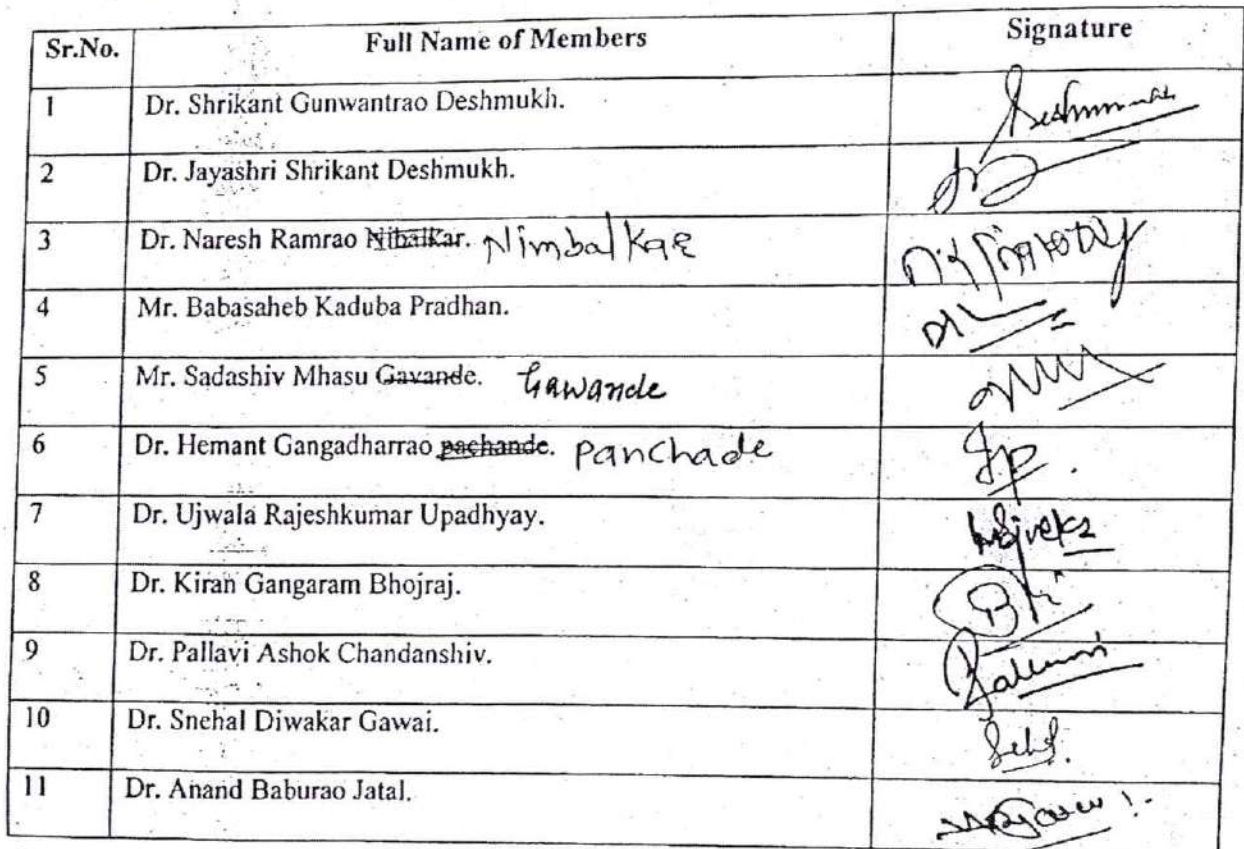 Sr.No. Full Name of Members Signature
1 Dr. Shrikant Gunwantrao Deshmukh. Deshmukh
2 Dr. Jayashri Shrikant Deshmukh.
3 Dr. Naresh Ramrao Nibalkar. Nimbalkar
4 Mr. Babasaheb Kaduba Pradhan.
5 Mr. Sadashiv Mhasu Gavande. Gawande
6 Dr. Hemant Gangadharrao pachande. Panchade
7 Dr. Ujwala Rajeshkumar Upadhyay.
8 Dr. Kiran Gangaram Bhojraj.
9 Dr. Pallavi Ashok Chandanshiv.
10 Dr. Snehal Diwakar Gawai.
11 Dr. Anand Baburao Jatal.